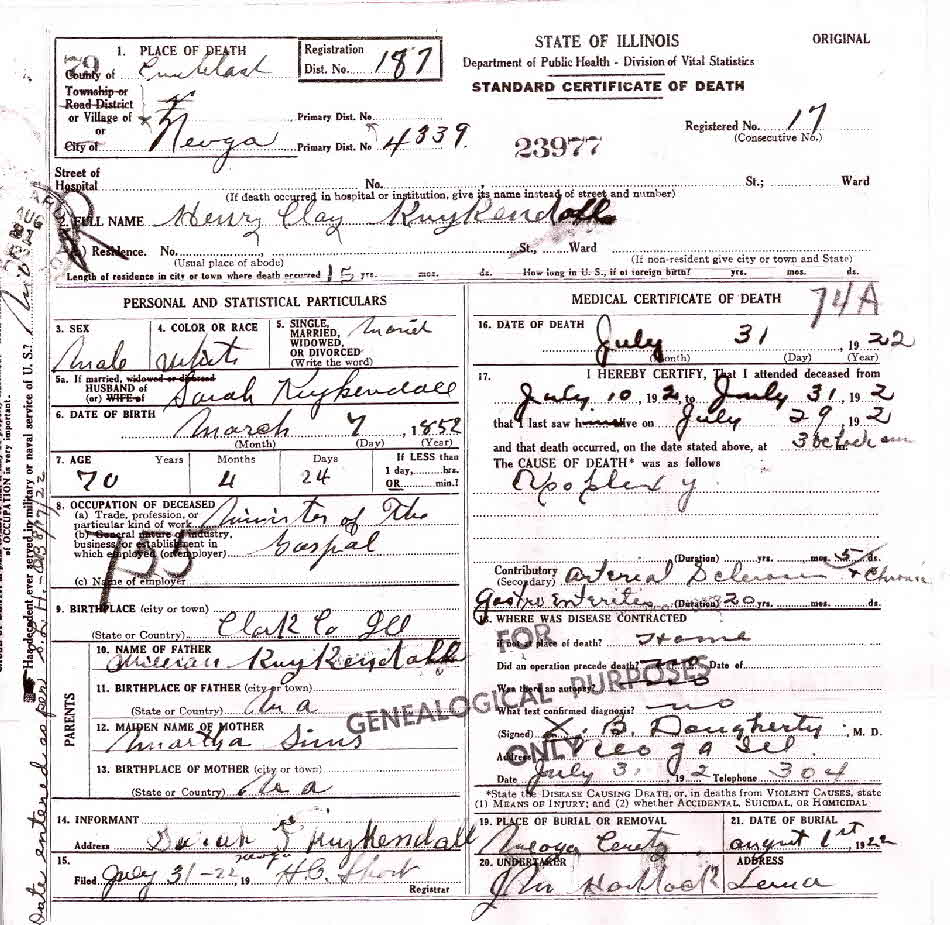 STATE OF ILLINOIS
ORIGINAL
Department of Public Health - Division of Vital Statistics
STANDARD CERTIFICATE OF DEATH
1. PLACE OF DEATH
Registration Dist. No. 187
79
County of
Township or
Road District
or Village of
or
City of Neoga
Primary Dist. No
Primary Dist. No 4339
23977
Registered No. 17
(Consecutive No.)
Street of
Hospital No. St.; Ward
(If death occurred in hospital or institution, give its name instead of street and number)
FULL NAME Henry Clay Kuykendall
Residence. No. St., Ward
(Usual place of abode) (If non-resident give city or town and State)
Length of residence in city or town where death occurred 15 yrs. mos. ds. How long in U. S., if of foreign birth? yrs. mos. ds.
PERSONAL AND STATISTICAL PARTICULARS
3. SEX
Male
4. COLOR OR RACE
White
5. SINGLE, MARRIED, WIDOWED, OR DIVORCED
(Write the word)
5a. If married, widowed or divorced
HUSBAND of
(or) WIFE of
Sarah Kuykendall
6. DATE OF BIRTH
March 7, 1852
(Month) (Day) (Year)
7. AGE Years Months Days If LESS than
1 day, hrs.
OR min.
70 4 24
8. OCCUPATION OF DECEASED
(a) Trade, profession, or
particular kind of work Minister of The
(b) General nature of industry,
business, or establishment in
which employed (or employer) Gospal
155
(c) Name of employer
9. BIRTHPLACE (city or town)
(State or Country) Clark Co Ill
PARENTS
10. NAME OF FATHER
William Kuykendall
11. BIRTHPLACE OF FATHER (city or town)
(State or Country)
12. MAIDEN NAME OF MOTHER
Martha Sims
13. BIRTHPLACE OF MOTHER (city or town)
(State or Country)
14. INFORMANT
Address Sarah Kuykendall
15.
Filed July 31-22 19 H.C. Short
Registrar
MEDICAL CERTIFICATE OF DEATH
74A
16. DATE OF DEATH
July 31 1922
(Month) (Day) (Year)
17. I HEREBY CERTIFY, That I attended deceased from
July 10, 192 to July 31, 192
that I last saw alive on July 29, 192
and that death occurred, on the date stated above, at 3 oclock am
The CAUSE OF DEATH* was as follows
Apoplexy
(Duration) yrs. mos. 5 ds.
Contributory
(Secondary) Arterial Sclerosis + Chronic
Gastro Enterites (Duration) 20 yrs. mos. ds.
18. WHERE WAS DISEASE CONTRACTED
if not at place of death? Home
Did an operation precede death? no Date of
Was there an autopsy?
What test confirmed diagnosis? no
(Signed) B. Dougherty, M. D.
Address Neoga Ill
Date July 31 192 Telephone 304
FOR
GENEALOGICAL PURPOSES
ONLY
*State the DISEASE CAUSING DEATH, or, in deaths from VIOLENT CAUSES, state
(1) MEANS OF INJURY; and (2) whether ACCIDENTAL, SUICIDAL, OR HOMICIDAL
19. PLACE OF BURIAL OR REMOVAL
21. DATE OF BURIAL
August 1st, 1922
20. UNDERTAKER
ADDRESS
Lerna
of OCCUPATION is very important.
Has decedent ever served in military or naval service of U. S.?
Date entered as per